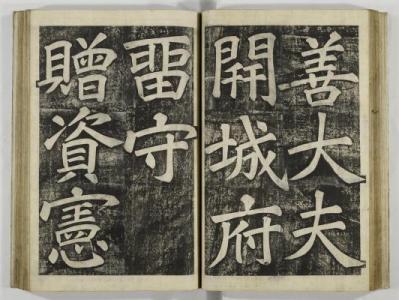 善大夫
開城府
留守
贈資憲